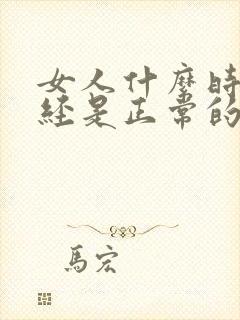 女人什麼時
經是正常的
馬宏